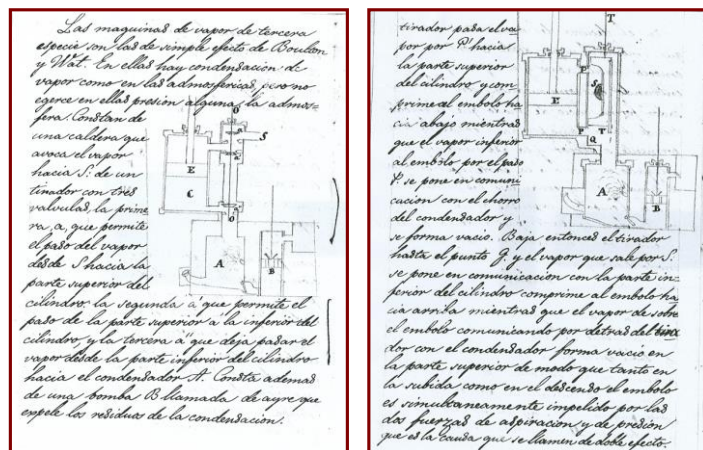 Las maquinas de vapor de tercera
especie son las de simple efecto de Boulton
y Wat. En ellas hay condensacion de
vapor como en las admosfericas, pero no
egerce en ellas presion alguna la admos-
fera. Constan de
una caldera que
avoca el vapor
hacia S: de un
tirador con tres
valvulas, la prime
ra, a, que permite
el paso del vapor
desde S hacia la
parte superior del
cilindro: la segunda a' que permite el
paso de la parte superior à la inferior del
cilindro, y la tercera a'' que deja pasar el
vapor desde la parte inferior del cilindro
hacia el condensador A. Consta ademas
de una bomba B llamada de ayre que
expele los residuos de la condensacion.
O
S
E
C
O
A
B
tirador pasa el va
por por P' hacia
la parte superior
del cilindro y com
prime al embolo ha
cia abajo mientras
que el vapor inferior
al embolo por el paso
P. se pone en comuni
cacion con el chorro
del condensador y
se forma vacio. Baja entonces el tirador
hasta el punto Q. y el vapor que sale por S.
se pone en comunicacion con la parte in-
ferior del cilindro comprime al embolo ha
cia arriba mientras que el vapor de sobre
el embolo comunicando por detras del tira
dor con el condensador forma vacio en
la parte superior de modo que tanto en
la subida como en el descenso el embolo
es simultaneamente impelido por las
dos fuerzas de aspiracion y de presion
que es la causa que se llamen de doble efecto.
T
P
S
E
P
T
Q
A
B